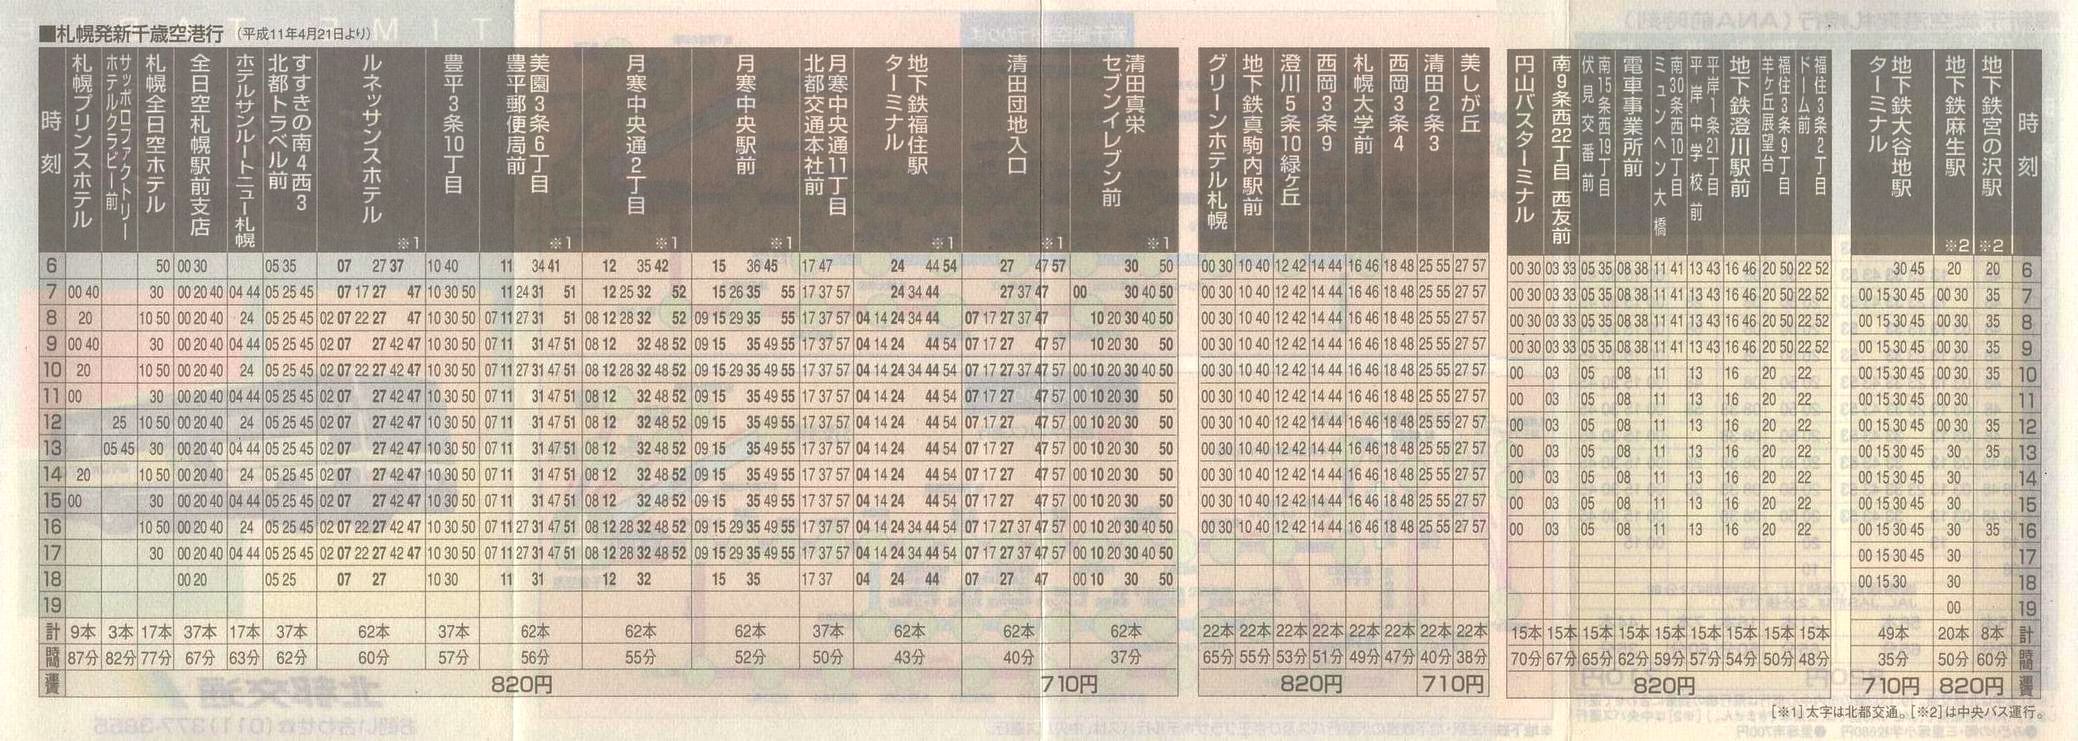 ■札幌発新千歳空港行 (平成11年4月21日より)
時刻 札幌プリンスホテル サッポロファクトリーホテルクラビー前 札幌全日空ホテル 全日空札幌駅前支店 ホテルサンルートニュー札幌 すすきの南4西3北都トラベル前 ルネッサンスホテル※1 豊平3条10丁目 美園3条6丁目豊平郵便局前※1 月寒中央通2丁目※1 月寒中央駅前※1 月寒中央通11丁目北都交通本社前 地下鉄福住駅ターミナル※1 清田団地入口※1 清田真栄セブンイレブン前※1
6 50 00 30 05 35 07 27 37 10 40 11 34 41 12 35 42 15 36 45 17 47 24 44 54 27 47 57 30 50
7 00 40 30 00 20 40 04 44 05 25 45 07 17 27 47 10 30 50 11 24 31 51 12 25 32 52 15 26 35 55 17 37 57 24 34 44 27 37 47 00 30 40 50
8 20 10 50 00 20 40 24 05 25 45 02 07 22 27 47 10 30 50 07 11 27 31 51 08 12 28 32 52 09 15 29 35 55 17 37 57 04 14 24 34 44 07 17 27 37 47 10 20 30 40 50
9 00 40 30 00 20 40 04 44 05 25 45 02 07 27 42 47 10 30 50 07 11 31 47 51 08 12 32 48 52 09 15 35 49 55 17 37 57 04 14 24 44 54 07 17 27 47 57 10 20 30 50
10 20 10 50 00 20 40 24 05 25 45 02 07 22 27 42 47 10 30 50 07 11 27 31 47 51 08 12 28 32 48 52 09 15 29 35 49 55 17 37 57 04 14 24 34 44 54 07 17 27 37 47 57 00 10 20 30 40 50
11 00 30 00 20 40 04 44 05 25 45 02 07 27 42 47 10 30 50 07 11 31 47 51 08 12 32 48 52 09 15 35 49 55 17 37 57 04 14 24 44 54 07 17 27 47 57 00 10 20 30 50
12 25 10 50 00 20 40 24 05 25 45 02 07 27 42 47 10 30 50 07 11 31 47 51 08 12 32 48 52 09 15 35 49 55 17 37 57 04 14 24 44 54 07 17 27 47 57 00 10 20 30 50
13 05 45 30 00 20 40 04 44 05 25 45 02 07 27 42 47 10 30 50 07 11 31 47 51 08 12 32 48 52 09 15 35 49 55 17 37 57 04 14 24 44 54 07 17 27 47 57 00 10 20 30 50
14 20 10 50 00 20 40 24 05 25 45 02 07 27 42 47 10 30 50 07 11 31 47 51 08 12 32 48 52 09 15 35 49 55 17 37 57 04 14 24 44 54 07 17 27 47 57 00 10 20 30 50
15 00 30 00 20 40 04 44 05 25 45 02 07 27 42 47 10 30 50 07 11 31 47 51 08 12 32 48 52 09 15 35 49 55 17 37 57 04 14 24 44 54 07 17 27 47 57 00 10 20 30 50
16 10 50 00 20 40 24 05 25 45 02 07 22 27 42 47 10 30 50 07 11 27 31 47 51 08 12 28 32 48 52 09 15 29 35 49 55 17 37 57 04 14 24 34 44 54 07 17 27 37 47 57 00 10 20 30 40 50
17 30 00 20 40 04 44 05 25 45 02 07 22 27 42 47 10 30 50 07 11 27 31 47 51 08 12 28 32 48 52 09 15 29 35 49 55 17 37 57 04 14 24 34 44 54 07 17 27 37 47 57 00 10 20 30 40 50
18 00 20 05 25 07 27 10 30 11 31 12 32 15 35 17 37 04 24 44 07 27 47 00 10 30 50
19
計 9本 3本 17本 37本 17本 37本 62本 37本 62本 62本 62本 37本 62本 62本 62本
時間 87分 82分 77分 67分 63分 62分 60分 57分 56分 55分 52分 50分 43分 40分 37分
運賃 820円 710円
グリーンホテル札幌 地下鉄真駒内駅前 澄川5条10緑ヶ丘 西岡3条9 札幌大学前 西岡3条4 清田2条3 美しが丘
00 30 10 40 12 42 14 44 16 46 18 48 25 55 27 57
00 30 10 40 12 42 14 44 16 46 18 48 25 55 27 57
00 30 10 40 12 42 14 44 16 46 18 48 25 55 27 57
00 30 10 40 12 42 14 44 16 46 18 48 25 55 27 57
00 30 10 40 12 42 14 44 16 46 18 48 25 55 27 57
00 30 10 40 12 42 14 44 16 46 18 48 25 55 27 57
00 30 10 40 12 42 14 44 16 46 18 48 25 55 27 57
00 30 10 40 12 42 14 44 16 46 18 48 25 55 27 57
00 30 10 40 12 42 14 44 16 46 18 48 25 55 27 57
00 30 10 40 12 42 14 44 16 46 18 48 25 55 27 57
00 30 10 40 12 42 14 44 16 46 18 48 25 55 27 57
22本 22本 22本 22本 22本 22本 22本 22本
65分 55分 53分 51分 49分 47分 40分 38分
820円 710円
円山バスターミナル 南9条西22丁目 西友前 南15条西19丁目伏見交番前 電車事業所前 南30条西10丁目ミュンヘン大橋 平岸中学校前 平岸1条21丁目 地下鉄澄川駅前 福住3条9丁目羊ヶ丘展望台 福住3条2丁目ドーム前
00 30 03 33 05 35 08 38 11 41 13 43 16 46 20 50 22 52
00 30 03 33 05 35 08 38 11 41 13 43 16 46 20 50 22 52
00 30 03 33 05 35 08 38 11 41 13 43 16 46 20 50 22 52
00 30 03 33 05 35 08 38 11 41 13 43 16 46 20 50 22 52
00 03 05 08 11 13 16 20 22
00 03 05 08 11 13 16 20 22
00 03 05 08 11 13 16 20 22
00 03 05 08 11 13 16 20 22
00 03 05 08 11 13 16 20 22
00 03 05 08 11 13 16 20 22
00 03 05 08 11 13 16 20 22
15本 15本 15本 15本 15本 15本 15本 15本 15本
70分 67分 65分 62分 59分 57分 54分 50分 48分
820円
地下鉄大谷地駅ターミナル 地下鉄麻生駅※2 地下鉄宮の沢駅※2 時刻
30 45 20 20 6
00 15 30 45 00 30 35 7
00 15 30 45 00 30 35 8
00 15 30 45 00 30 35 9
00 15 30 45 00 30 35 10
00 15 30 45 00 30 11
00 15 30 45 00 30 35 12
00 15 30 45 30 35 13
00 15 30 45 30 14
00 15 30 45 30 15
00 15 30 45 30 35 16
00 15 30 45 30 17
00 15 30 30 18
00 19
49本 20本 8本 計
35分 50分 60分 時間
710円 820円 運賃
[※1]太字は北都交通。[※2]は中央バス運行。